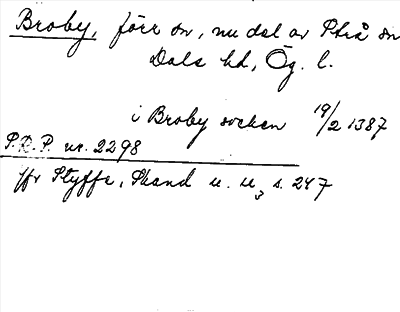 Broby, förr sn, nu del av Strå sn
Dals hd, Ög. l.
i Broby socken 19/2 1387
P.R.P. nr. 2298
jfr Styffe, Skand u. u3 s. 247